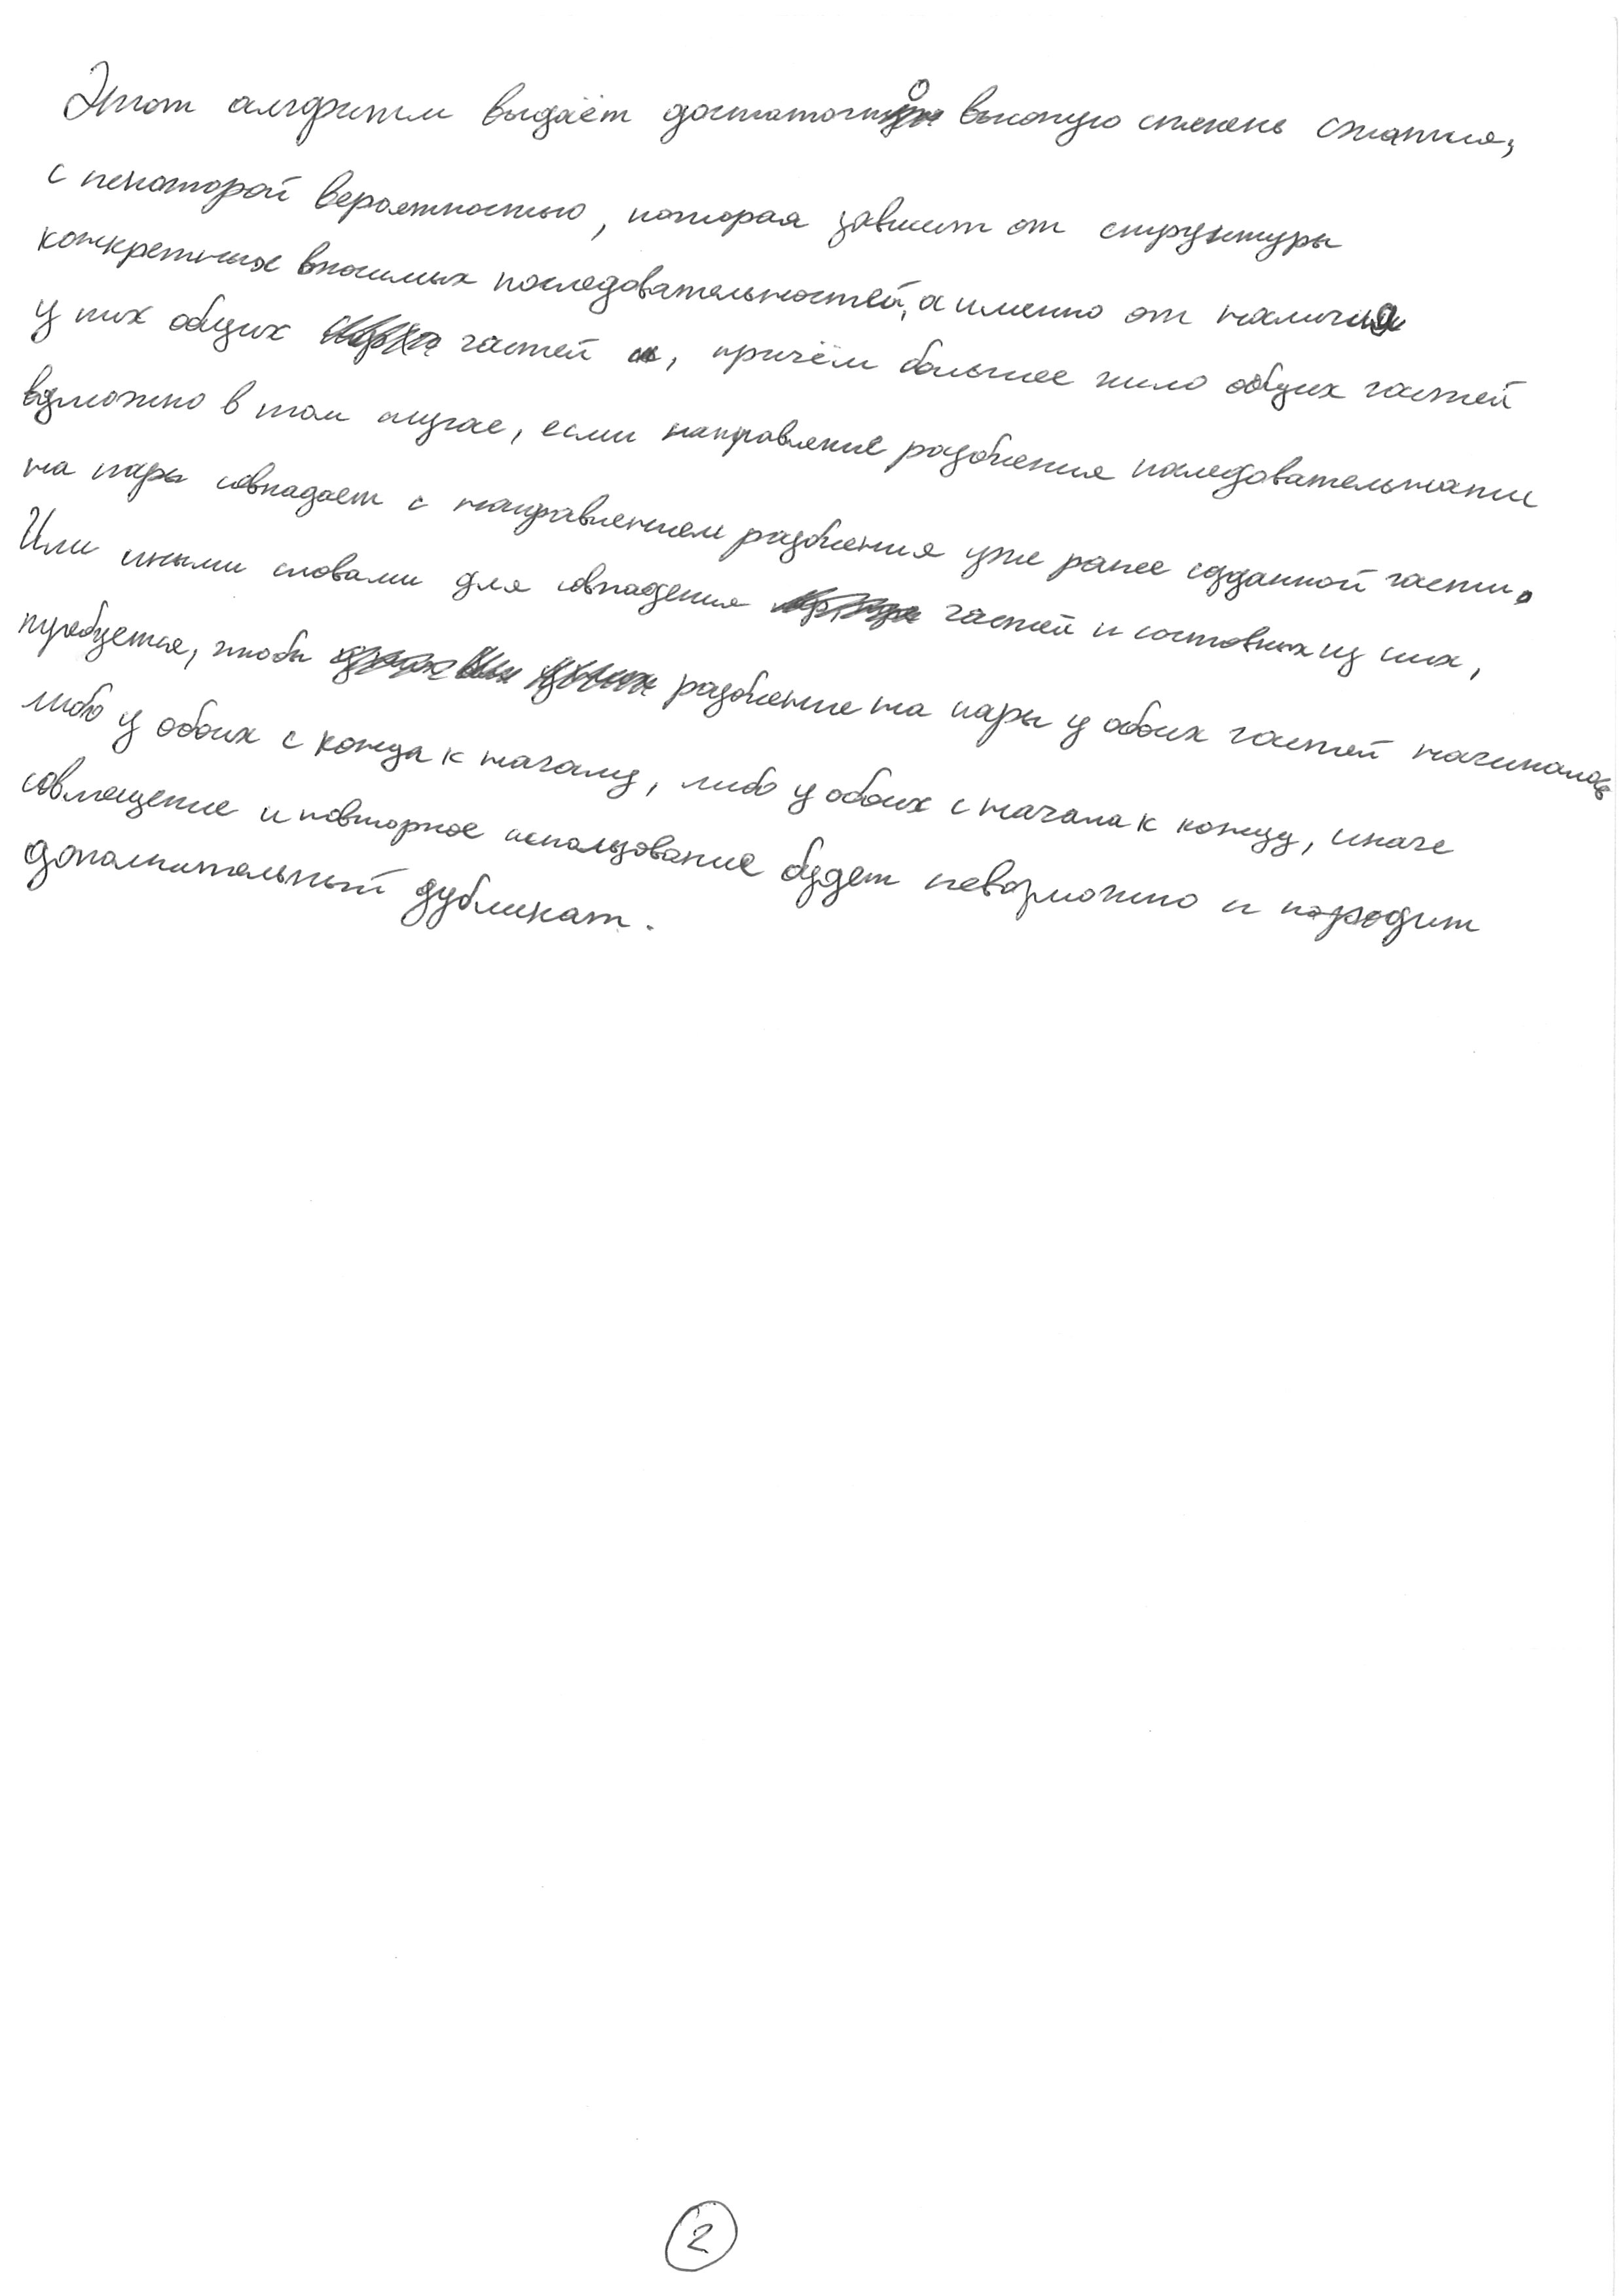 Этот алгоритм выдаёт достаточно высокую степень сжатия,
с некоторой вероятностью, которая зависит от структуры
конкретных вносимых последовательностей, а именно от наличия
у них общих частей, причём большее число общих частей
возможно в том случае, если направление разбиения последовательности
на пары совпадает с направлением разбиения уже ранее созданной части.
Или иными словами для совпадения частей и составных из них,
требуется, чтобы разбиение на пары у обоих частей начиналось
либо у обоих с конца к началу, либо у обоих с начала к концу, иначе
совмещение и повторное использование будет невозможно и породит
дополнительный дубликат.
2